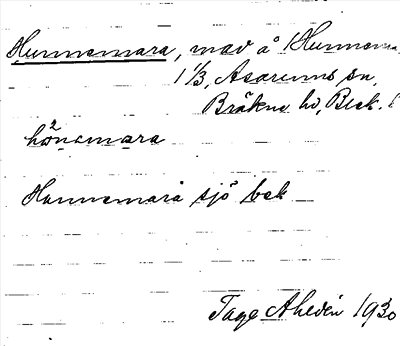 Hunnemara, mad å Hunnema
1 1/3, Asarums sn,
Bräkne hd, Blek. l
hönamara
Hunnemara sjö bek
Tage Ahlén 1930